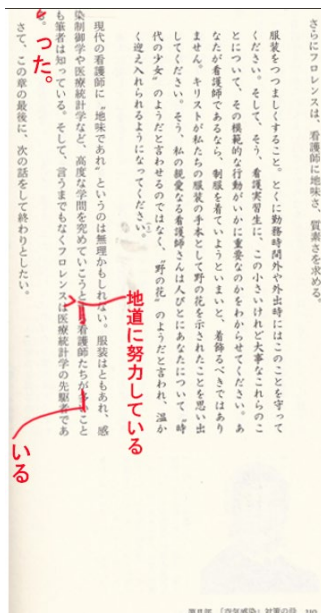 さらにフロレンスは、看護師に地味さ、質素さを求める。
服装をつつましくすること。とくに勤務時間外や外出時にはこのことを守って
ください。そして、そう、看護実習生に、この小さいけれど大事なこれらのこ
とについて、その模範的な行動がいかに重要なのかをわからせてください。あ
なたが看護師であるなら、制服を着ていようといまいと、着飾るべきではあり
ません。キリストが私たちの服装の手本として野の花を示されたことを思い出
してください。そう、私の親愛なる看護師さんは人びとにあなたについて〝時
代の少女〟のようだと言わせるのではなく、〝野の花〟のようだと言われ、温か
く迎え入れられるようになってください。
現代の看護師に〝地味であれ〟というのは無理かもしれない。服装はともあれ、感
染制御学や医療統計学など、高度な学問を究めていこうと看護師たちが
地道に努力している
いる
こと
も筆者は知っている。そして、言うまでもなくフロレンスは医療統計学の先駆者であ
った。
さて、この章の最後に、次の話をして終わりとしたい。